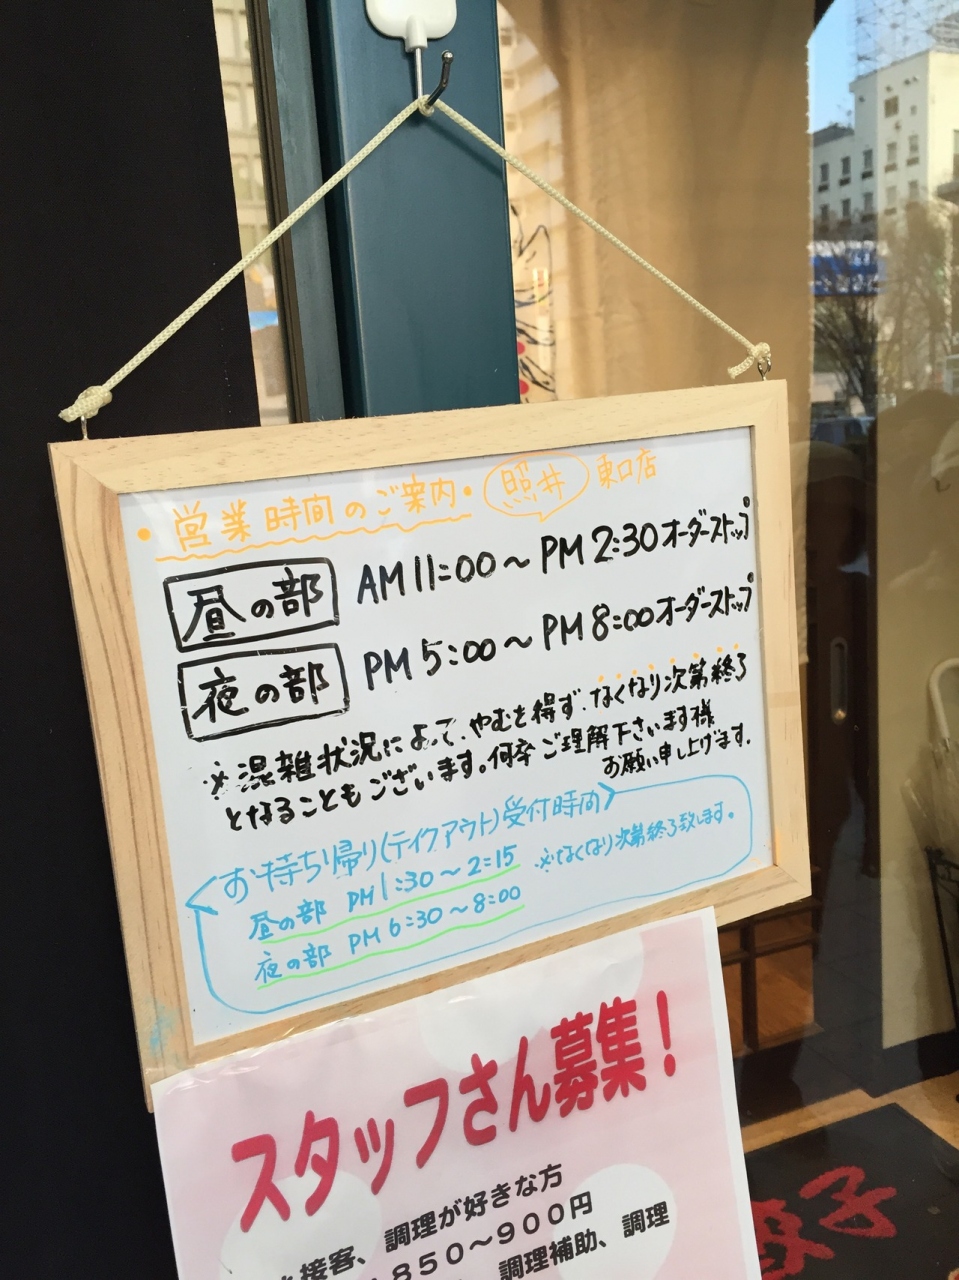 •営業時間のご案内• 照井 東口店
昼の部 AM 11:00～PM 2:30 オーダーストップ
夜の部 PM 5:00～PM 8:00 オーダーストップ
※混雑状況によって、やむを得ず、なくなり次第終了
となることもございます。何卒ご理解下さいます様
お願い申し上げます。
お持ち帰り(テイクアウト)受付時間
昼の部 PM 1:30～2:15 ※なくなり次第終了致します。
夜の部 PM 6:30～8:00
スタッフさん募集！
接客、調理が好きな方
850～900円
調理補助、調理
子